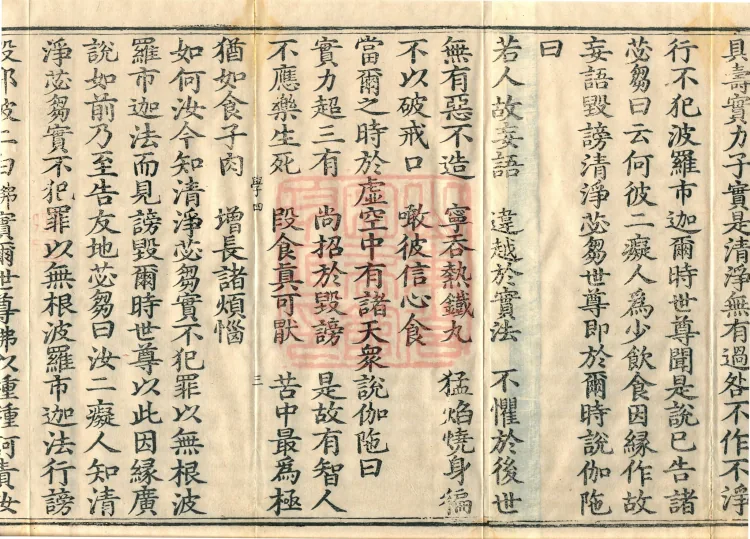 具壽實力子實是清淨無有過咎不作不淨
行不犯波羅市迦爾時世尊聞是說已告諸
苾芻曰云何彼二癡人為少飲食因緣作故
妄語毀謗清淨苾芻世尊即於爾時說伽陁
曰
若人故妄語　違越於實法　不懼於後世
無有惡不造　寧吞熱鐵丸　猛焰燒身徧
不以破戒口　噉彼信心食
當爾之時於虛空中有諸天衆說伽陁曰
實力超三有　尚招於毀謗　是故有智人
不應樂生死　段食真可猒　苦中最為極
學四　三
猶如食子肉　增長諸煩惱
如何汝今知清淨苾芻實不犯罪以無根波
羅市迦法而見謗毀爾時世尊以此因緣廣
說如前乃至告友地苾芻曰汝二癡人知清
淨苾芻實不犯罪以無根波羅市迦法行謗
彼二曰佛實爾世尊佛以種種訶責汝